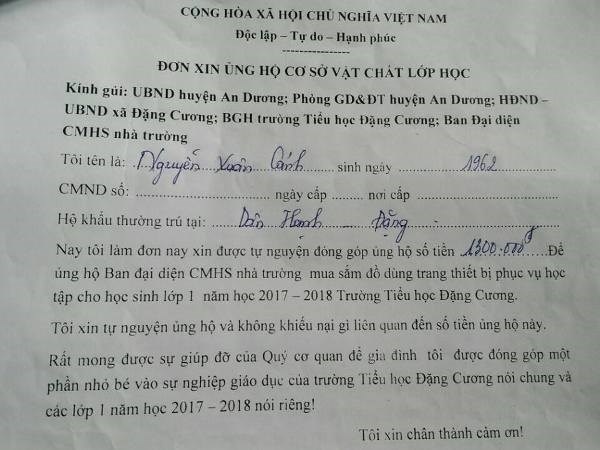 CỘNG HÒA XÃ HỘI CHỦ NGHĨA VIỆT NAM
Độc lập – Tự do – Hạnh phúc
----------------
ĐƠN XIN ỦNG HỘ CƠ SỞ VẬT CHẤT LỚP HỌC
Kính gửi: UBND huyện An Dương; Phòng GD&ĐT huyện An Dương; HĐND –
UBND xã Đặng Cương; BGH trường Tiểu học Đặng Cương; Ban Đại diện
CMHS nhà trường
Tôi tên là: Nguyễn Xuân Cảnh sinh ngày 1962
CMND số: ........................ ngày cấp ......... nơi cấp ....................
Hộ khẩu thường trú tại: Đặng
Nay tôi làm đơn nay xin được tự nguyện đóng góp ủng hộ số tiền 1300.000đ Để
ủng hộ Ban đại diện CMHS nhà trường mua sắm đồ dùng trang thiết bị phục vụ học
tập cho học sinh lớp 1 năm học 2017 – 2018 Trường Tiểu học Đặng Cương.
Tôi xin tự nguyện ủng hộ và không khiếu nại gì liên quan đến số tiền ủng hộ này.
Rất mong được sự giúp đỡ của Quý cơ quan để gia đình tôi được đóng góp một
phần nhỏ bé vào sự nghiệp giáo dục của trường Tiểu học Đặng Cương nói chung và
các lớp 1 năm học 2017 – 2018 nói riêng!
Tôi xin chân thành cảm ơn!